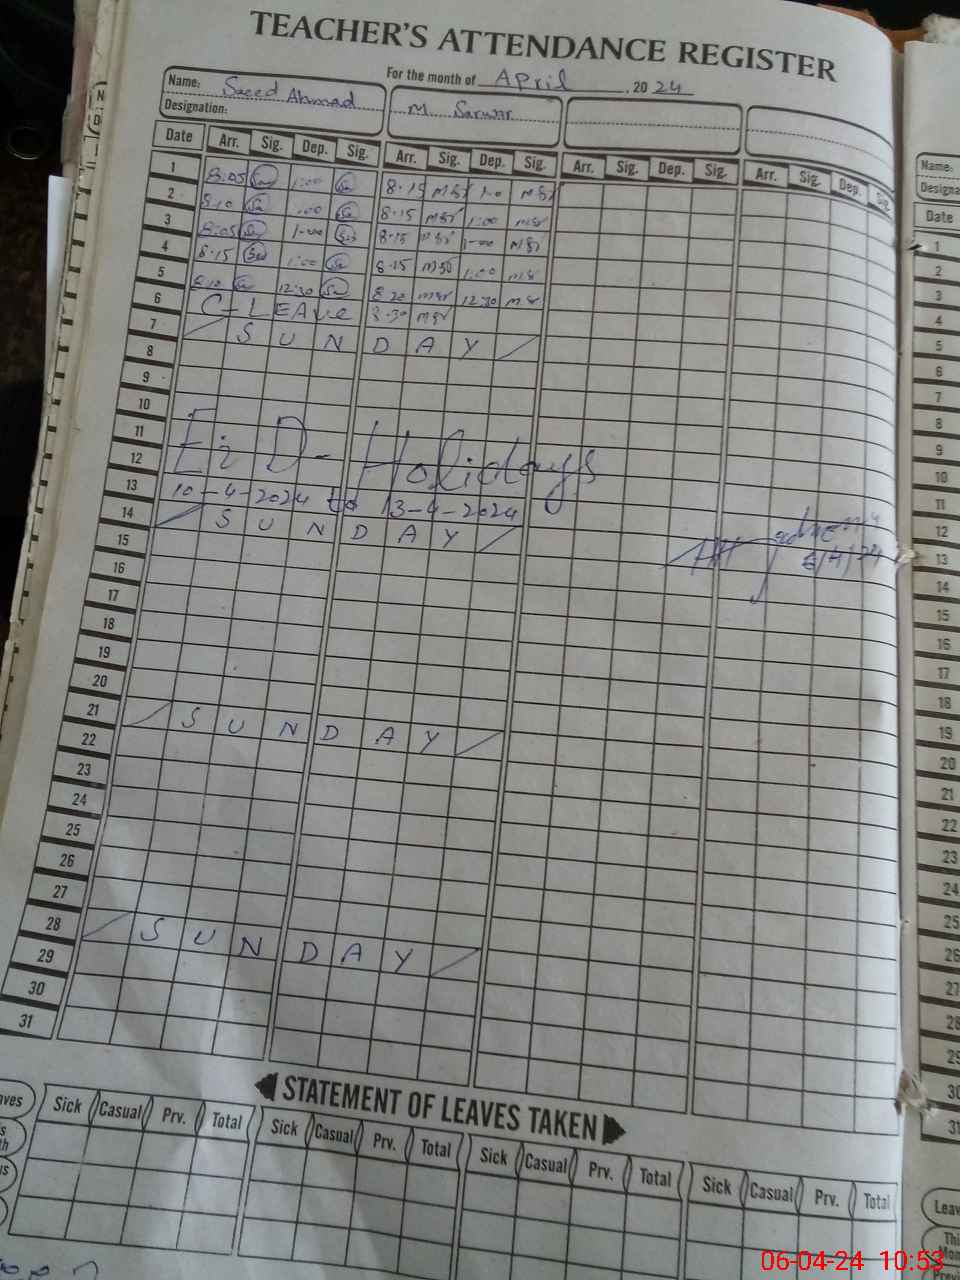 TEACHER'S ATTENDANCE REGISTER
For the month of April, 2024
Name: Saeed Ahmad
Designation:
M. Sarwar
Date Arr. Sig. Dep. Sig. Arr. Sig. Dep. Sig. Arr. Sig. Dep. Sig. Arr. Sig. Dep. Sig.
1 8:05 1:00 8-15 1-0
2 8:10 1:00 8-15 1:00
3 8:05 1-00 8-15 1-00
4 8:15 1:00 8-15 1:00
5 8:10 12:30 8-20 12:30
6 C-LEAve 8-30
7 SUNDAY
8
9
10
11
12 EiD-Holidays
13 10-4-2024 to 13-4-2024
14 SUNDAY
15
16
17
18
19
20
21 SUNDAY
22
23
24
25
26
27
28 SUNDAY
29
30
31
STATEMENT OF LEAVES TAKEN
Sick Casual Prv. Total Sick Casual Prv. Total Sick Casual Prv. Total Sick Casual Prv. Total
Name:
Date
1
2
3
4
5
6
7
8
9
10
11
12
13
14
15
16
17
18
19
20
21
22
23
24
25
26
27
28
29
30
31
06-04-24 10:53